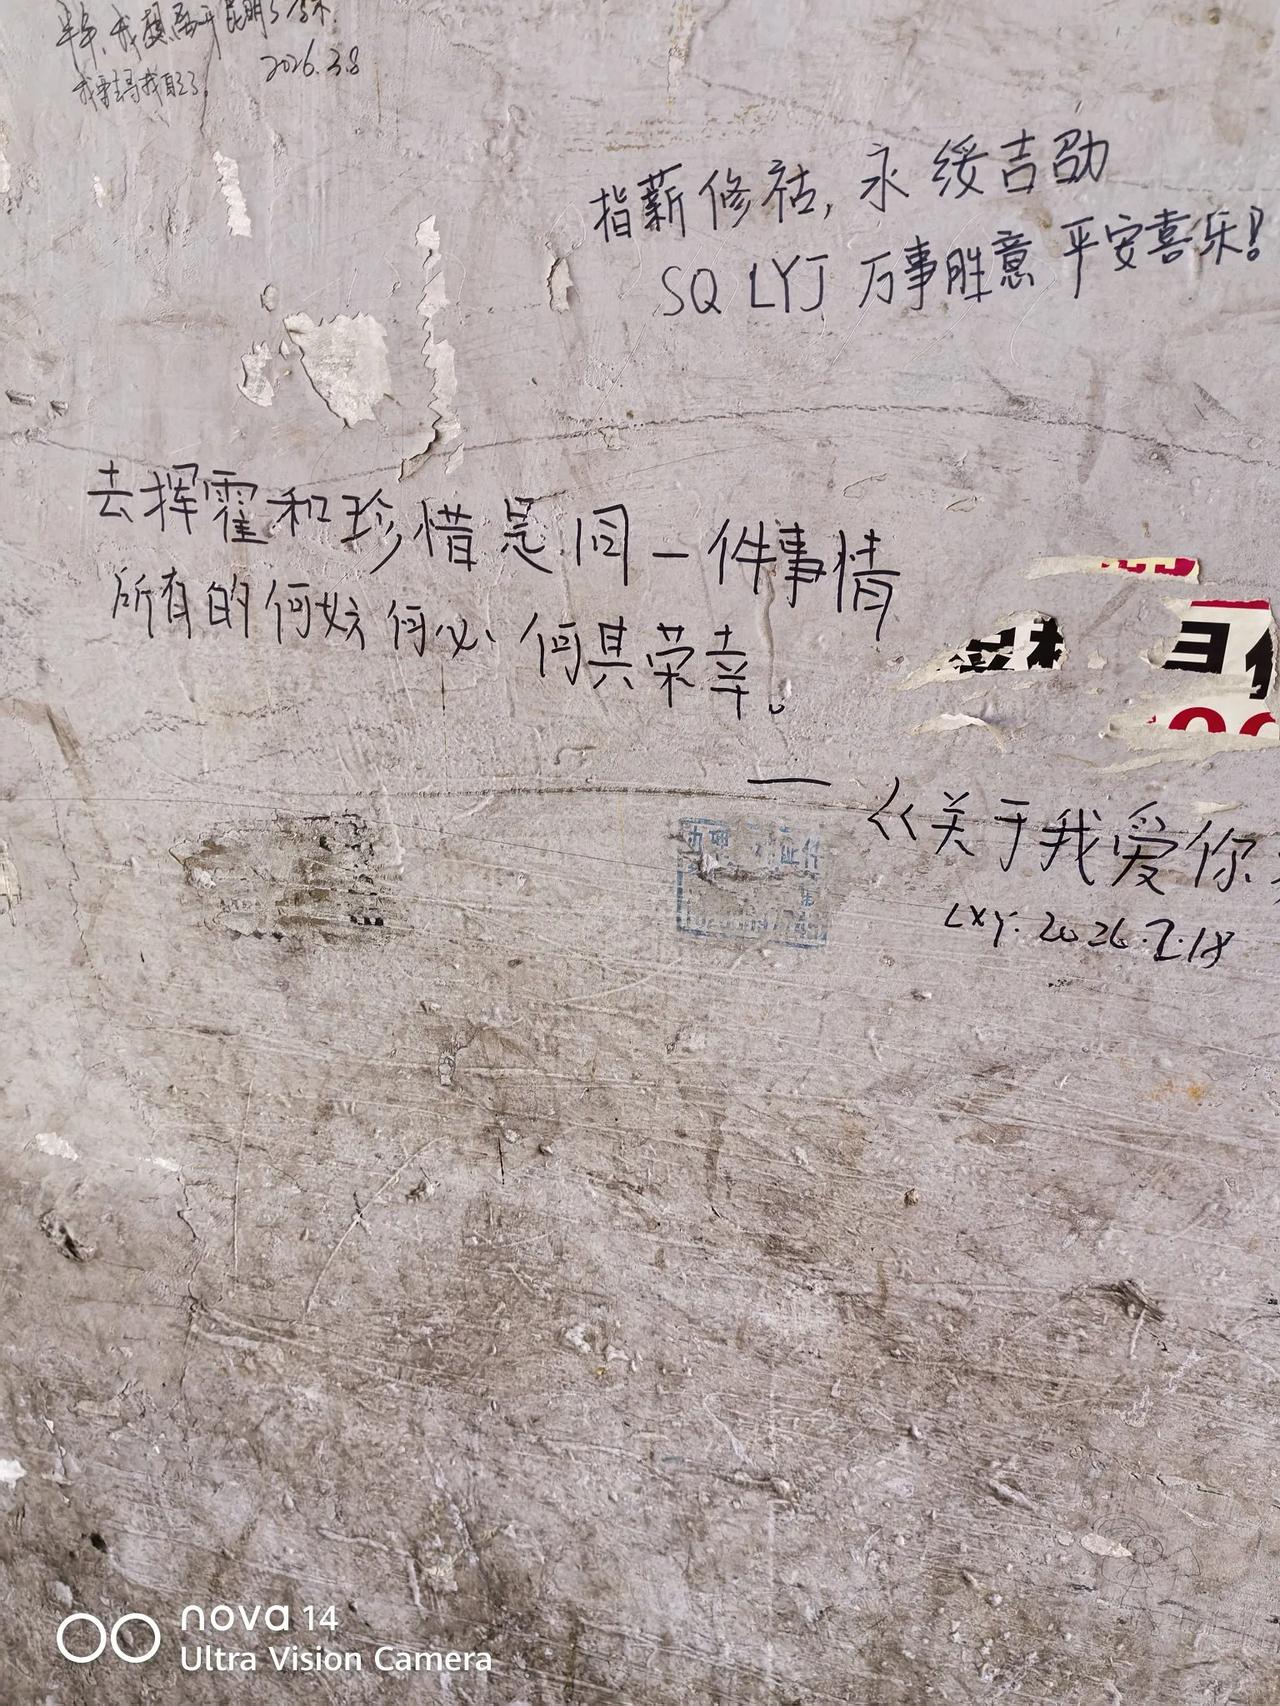 半年,我 离开昆明了
2026.3.8
我要去寻我自己了。
指薪修祜,永绥吉劭
SQ LYJ 万事胜意 平安喜乐!
去挥霍和珍惜是同一件事情
所有的何妨何必 何其荣幸。
——《关于我爱你
LXY. 2026.2.18
nova 14
Ultra Vision Camera